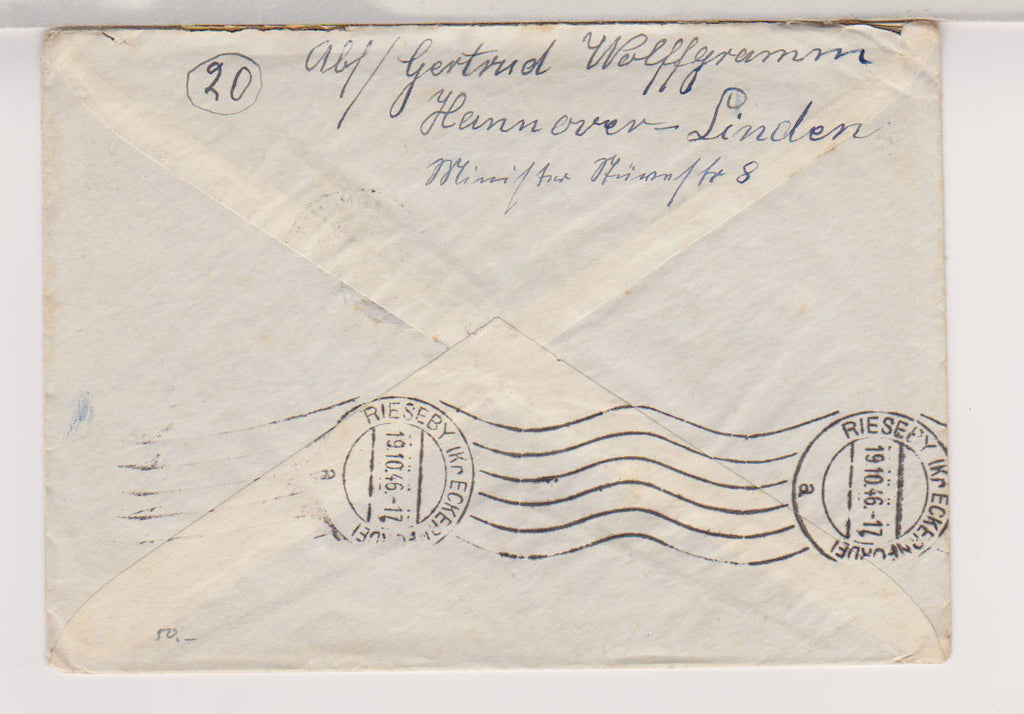 20
Abs/ Gertrud Wolffgramm
Hannover-Linden
Minister Stüvestr 8
RIESEBY (Kr ECKERNFÖRDE)
19.10.46.-17
a
RIESEBY (Kr ECKERNFÖRDE)
19.10.46.-17
a
50.-